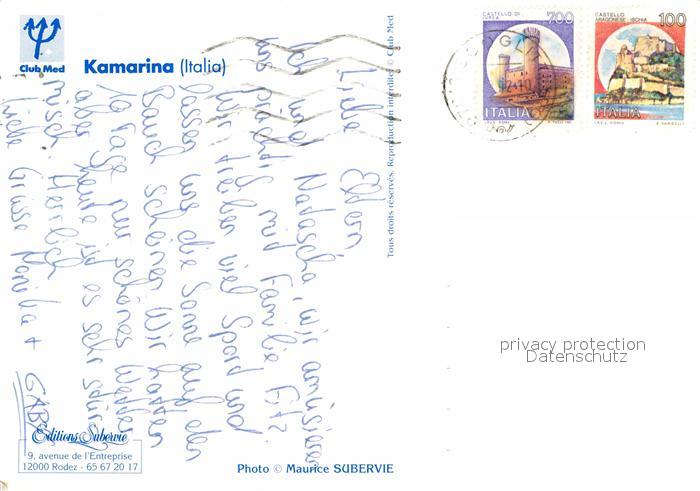 Club Med
Kamarina (Italia)
Liebe Eltern!
Ich und Natascha, wir amüsieren
uns prächtig mit Familie Fitz
Wir treiben viel Sport und
lassen uns die Sonne auf den
Bauch scheinen Wir hatten
Tage nur schönes Wetter
aber heute ist es sehr stür
misch. Herzlich
Liebe Grüsse +
GABI
Editions Subervie
9, avenue de l'Entreprise
12000 Rodez - 65 67 20 17
Photo © Maurice SUBERVIE
Tous droits réservés. Reproduction interdite © Club Med
CASTELLO DI
IVREA
700
ITALIA
CASTELLO
ARAGONESE ISCHIA
100
ITALIA
privacy protection
Datenschutz